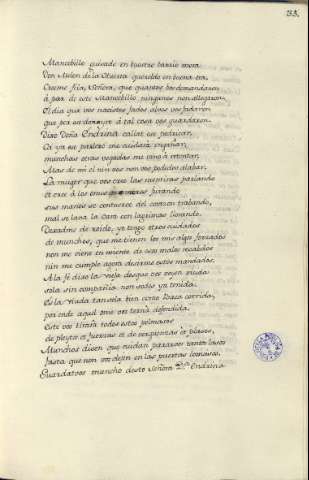 33.
Mancebillo guisado en vuestro barrio mora
Don Melon de la Ortiz
Creeme fija, Señora, que quantos vos demandaron
à par de este Mancebillo ningunos non allegaron.
El dia que vos nacistes fadas alvas vos fadaron
que por ese donayre à tal cosa vos guardaron.
Dixo Doña Endrina callat ese pedricar,
Ca ya ese parlero me cuidará engañar,
munchas otras vegadas me vino à retentar,
Mas de mi el nin vos non vos podedes alabar.
La muger que vos cree las mentiras parlando
et cree à los omes jurando
sus manos se contuerce del corazon trabando,
mal se lava la cara con lagrimas llorando.
Dexadme de roido, ya tengo otros cuidados
de munchos, que me tienen los mis algos forzados
non me viene en miente de esos malos recabdos
nin me cumple agora desirme estos mandados.
A la fé dixo la vieja desque vos veyen viuda
sola sin compañia non sodes ya temida:
Es la viuda tan sola bien como baca corrida,
por ende aquel ome vos ternia defendida.
Este vos tiraria todos estos pelmasos
de pleytos et fuerzas et de verguenzas et plasos,
Munchos dicen que cuidan pararvos lasos
fasta que non vos dejen en las puertas lumasos.
Guardatvos muncho desto Señora Dª. Endrina